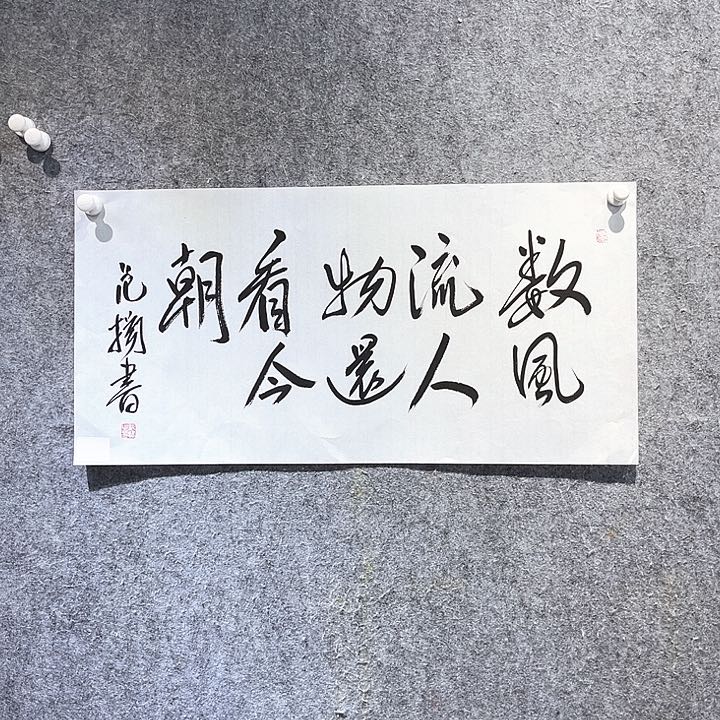 数風
流人
物還
看今
朝
范書